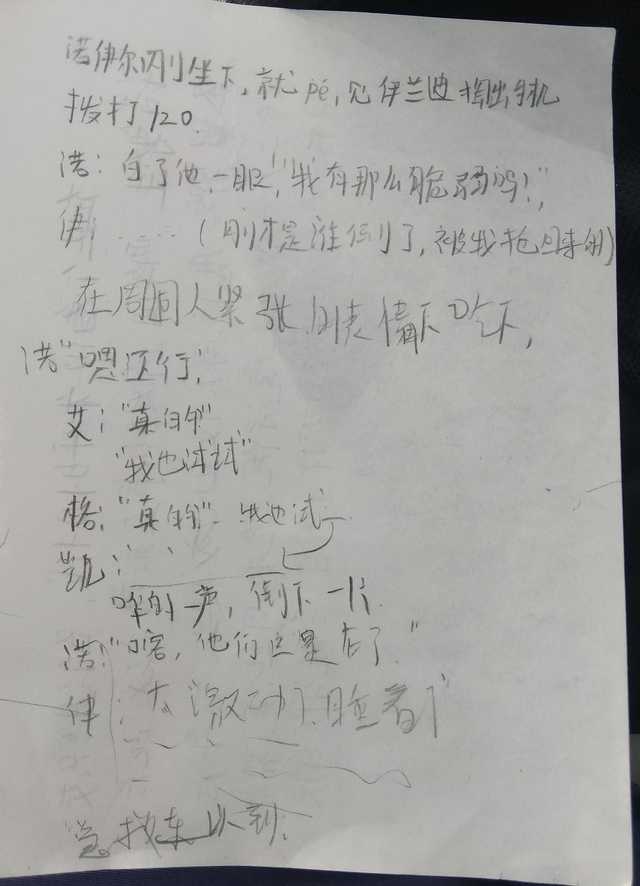 诺伊尔刚坐下,就pé,见伊兰迪掏出手机
拨打120.
诺:白了他一眼,"我有那么脆弱吗!",
伊:……(刚才是谁倒了,被我抢回来的)
在周围人紧张的表情下吃下,
诺"嗯还行,
艾:"真的"
"我也试试"
格:"真的"我也试
凯:、、
哗的一声,倒下一片
诺:"咯,他们这是怎了."
伊:太激动、睡着了
急救车以到.